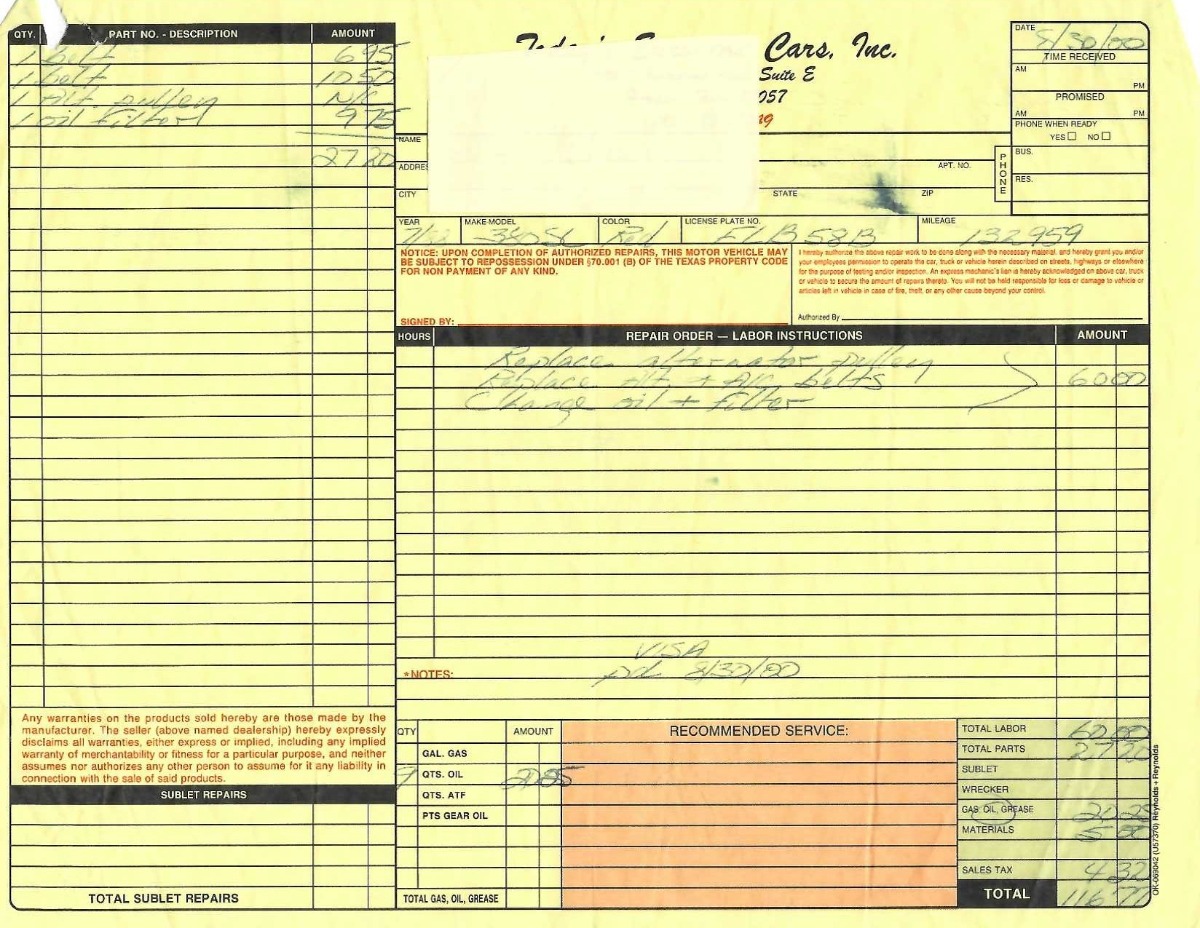 Cars, Inc.
Suite E
057
19
DATE 8/30/00
TIME RECEIVED
AM PM
PROMISED
AM PM
PHONE WHEN READY
YES NO
PHONE
BUS.
RES.
QTY. PART NO. - DESCRIPTION AMOUNT
1 belt 6 95
1 belt 10 50
1 Alt. pulley N/C
1 oil filter 9 75
27 20
NAME
ADDRES
APT. NO.
CITY STATE ZIP
YEAR MAKE-MODEL COLOR LICENSE PLATE NO. MILEAGE
380SL Red 132959
NOTICE: UPON COMPLETION OF AUTHORIZED REPAIRS, THIS MOTOR VEHICLE MAY
BE SUBJECT TO REPOSSESSION UNDER §70.001 (B) OF THE TEXAS PROPERTY CODE
FOR NON PAYMENT OF ANY KIND.
SIGNED BY:
I hereby authorize the above repair work to be done along with the necessary material, and hereby grant you and/or
your employees permission to operate the car, truck or vehicle herein described on streets, highways or elsewhere
for the purpose of testing and/or inspection. An express mechanic's lien is hereby acknowledged on above car, truck
or vehicle to secure the amount of repairs thereto. You will not be held responsible for loss or damage to vehicle or
articles left in vehicle in case of fire, theft, or any other cause beyond your control.
Authorized By
HOURS REPAIR ORDER — LABOR INSTRUCTIONS AMOUNT
Replace alternator pulley
Replace Alt. + A/C belts 60 00
Change oil + filter
VISA
*NOTES: pd 8/30/00
Any warranties on the products sold hereby are those made by the
manufacturer. The seller (above named dealership) hereby expressly
disclaims all warranties, either express or implied, including any implied
warranty of merchantability or fitness for a particular purpose, and neither
assumes nor authorizes any other person to assume for it any liability in
connection with the sale of said products.
SUBLET REPAIRS
TOTAL SUBLET REPAIRS
QTY AMOUNT
GAL. GAS
QTS. OIL
QTS. ATF
PTS GEAR OIL
TOTAL GAS, OIL, GREASE
RECOMMENDED SERVICE:
TOTAL LABOR 60 00
TOTAL PARTS 27 20
SUBLET
WRECKER
GAS, OIL, GREASE
MATERIALS 5 00
SALES TAX 4 32
TOTAL 116 77
OK-069042 (U57370) Reynolds + Reynolds